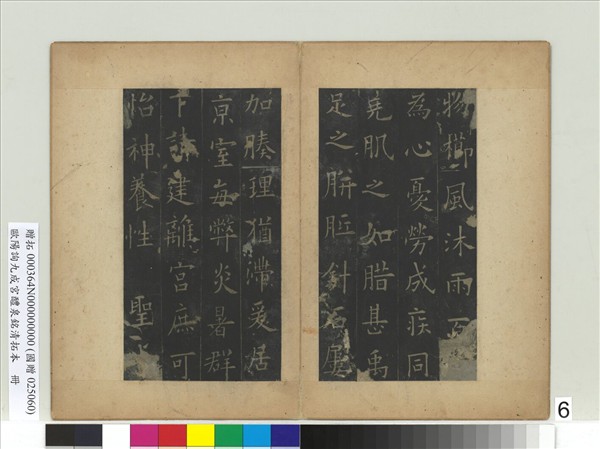 物櫛風沐雨百
為心憂勞成疾同
堯肌之如腊甚禹
足之胼胝針石屢
加腠理猶滯爰居
京室每弊炎暑群
下請建離宮庶可
怡神養性 聖
贈拓 000364N000000000 (國贈 025060)
歐陽詢九成宮醴泉銘清拓本 冊
6